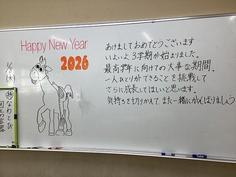 Happy New Year
2026
あけましておめでとうございます
いよいよ3学期が始まりました。
最高学年に向けての大事な期間。
一人ひとりができることを挑戦して
さらに成長してほしいと思います。
気持ちを切りかえて、また一緒にがんばりましょう